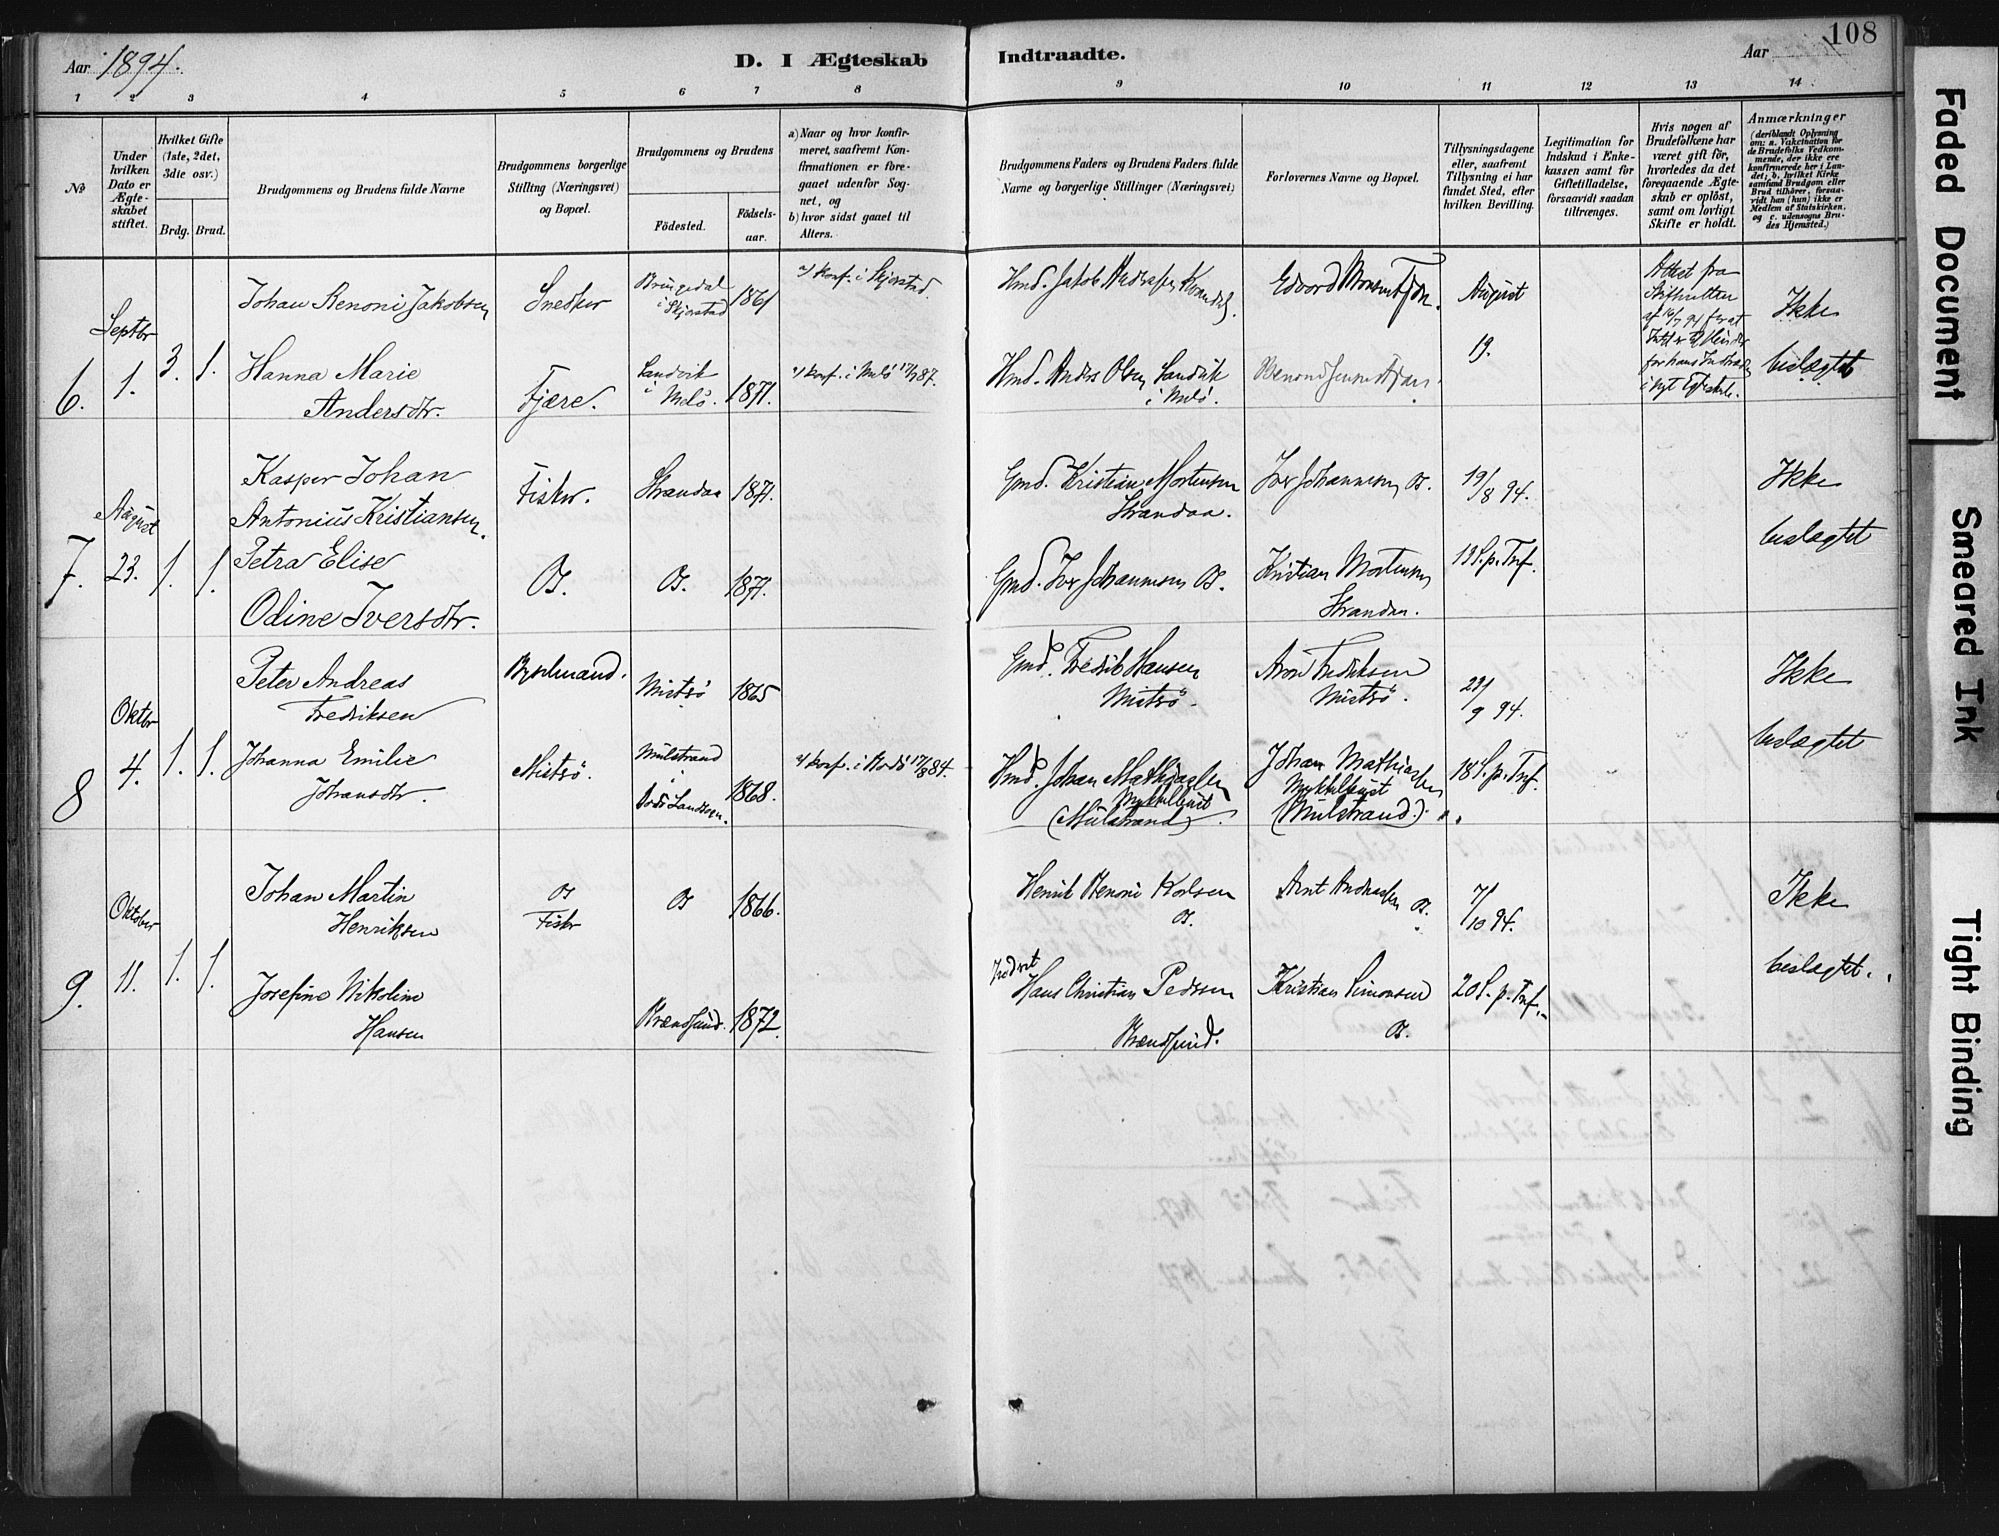 108
Aar 1894.
D. I Ægteskab
Indtraadte.
Aar
1 2 3 4 5 6 7 8
9 10 11 12 13 14
No
Under hvilken Dato er Ægteskabet stiftet.
Hvilket Gifte (1ste, 2det, 3die osv.)
Brdg. Brud.
Brudgommens og Brudens fulde Navne
Brudgommens borgerlige Stilling (Næringsvei) og Bopæl.
Brudgommens og Brudens
Födested.
Födselsaar.
a) Naar og hvor konfirmeret, saafremt Konfirmationen er foregaaet udenfor Sognet, og
b) hvor sidst gaaet til Alters.
Brudgommens Faders og Brudens Faders fulde Navne og borgerlige Stillinger (Næringsvei)
Forlovernes Navne og Bopæl.
Tillysningsdagene eller, saafremt Tillysning ei har fundet Sted, efter hvilken Bevilling.
Legitimation for Indskud i Enkekassen samt for Giftetilladelse, forsaavidt saadan tiltrænges.
Hvis nogen af Brudefolkene har været gift för, hvorledes da det foregaaende Ægteskab er oplöst, samt om lovligt Skifte er holdt.
Anmærkninger
(deriblandt Oplysning om: a. Vakcination for de Brudefolks Vedkommende, der ikke ere konfirmerede her i Landet; b. hvilket Kirkesamfund Brudgom eller Brud tilhörer, forsaavidt han (hun) ikke er Medlem af Statskirken, og c. udensogns Brudes Hjemsted.)
6. Septbr 1. 3. 1.
Johan Benoni Jakobsen
Snedker
i Skjerstad
1861
a) konf. i Skjerstad.
Hmd. Jakob
August 19.
Attest fra Skifteretten
i nyt Egteskab.
Ikke beslægtet
Hanna Marie Andersdtr.
Fjære.
Sandvik i Melö.
1871.
a) konf. i Melö 17/7 87.
Hmd. Anders Olsen Sandvik i Melö.
7. August 23. 1. 1.
Kasper Johan Antonius Kristiansen.
Fisker.
Strandaa
1871.
Gmd. Kristian Mortensen Strandaa.
Iver Johannesen Os.
19/8 94.
Ikke beslægtet
Petra Elise Odine Iversdtr.
Os.
Os.
1871.
Gmd. Iver Johannesen Os.
Kristian Mortensen Strandaa.
13 S. p. Trf.
8 Oktbr 4. 1. 1.
Peter Andreas Fredriksen
Mistsö
1865
Gmd. Fredrik Hansen Mistsö.
Aron Fredriksen Mistsö.
23/9 94.
Ikke beslægtet
Johanna Emilie Johansdtr.
Mistsö.
Mulstrand i Bodö Landsogn.
1868.
a) konf. i Bodö 17/8 84.
Hmd. Johan Mathiassen Myklebust (Mulstrand).
Johan Mathiassen Myklebust (Mulstrand).
18 S. p. Trf.
9. Oktober 11. 1. 1.
Johan Martin Henriksen
Os Fisker
Os
1866.
Henrik Benoni Karlsen Os.
Arnt Andreassen Os.
7/10 94.
Ikke beslægtet.
Josefine Nikoline Hansen
Brændsund.
1872.
Inderst Hans Christian Pedersen Brændsund.
Kristian Simonsen Os.
20 S. p. Trf.
Faded Document
Smeared Ink
Tight Binding